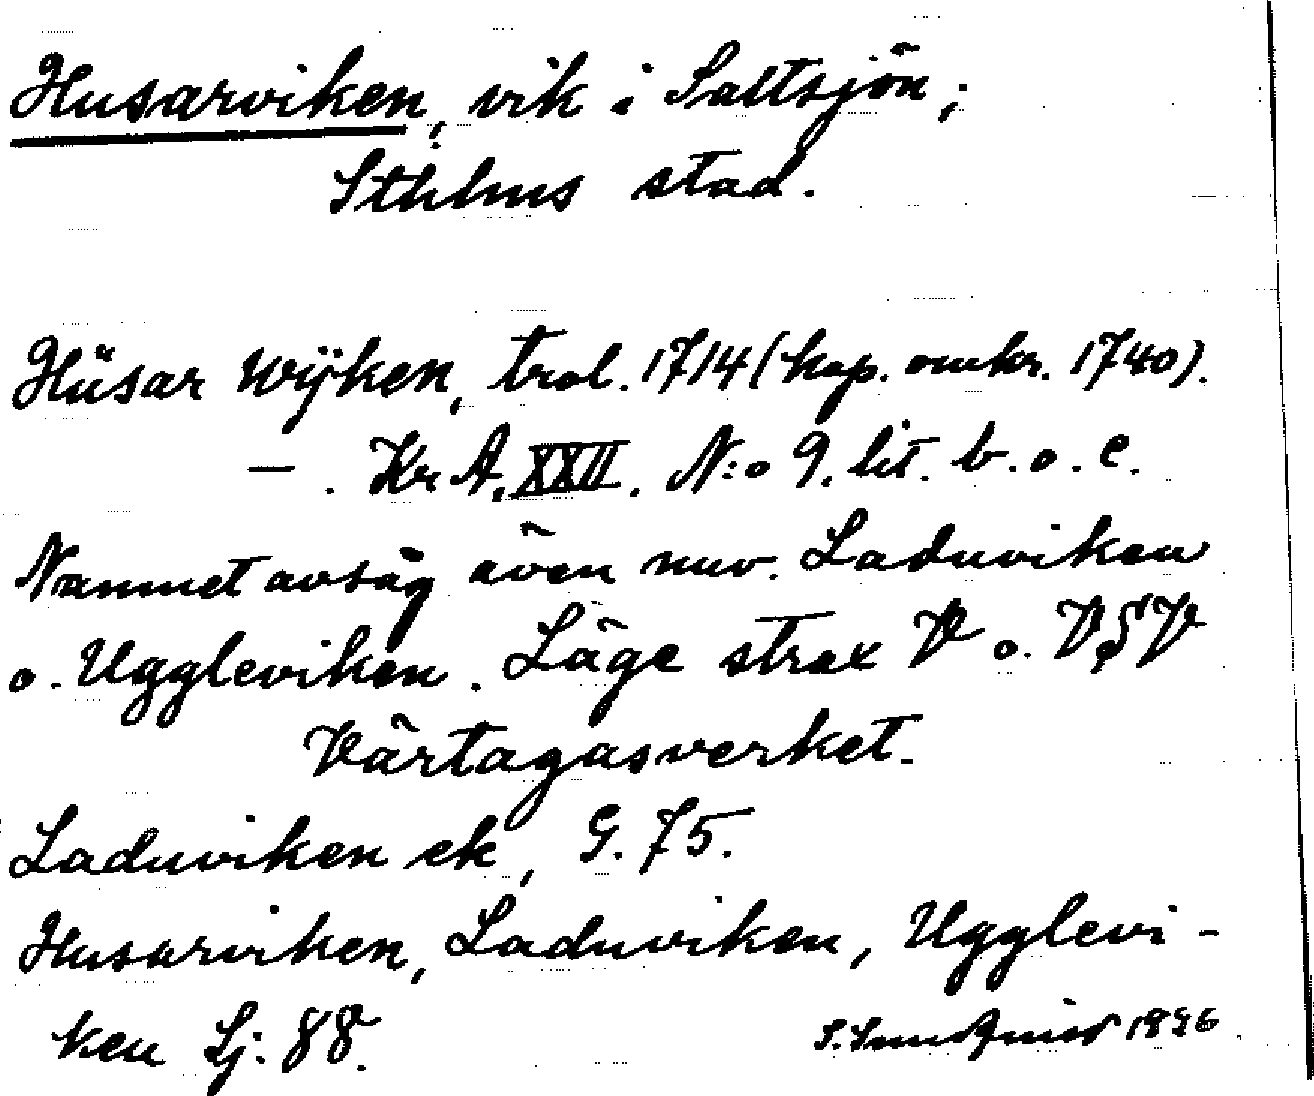 Husarviken, vik i Saltsjön;
Sthlms stad.
Hüsar Wÿken, trol. 1714 (kop. omkr. 1740).
— . Kr A. XXII. N:o 9. lit. b. o. c.
Namnet avsåg även nuv. Laduviken
o. Uggleviken. Läge strax V o. VSV
Värtagasverket.
Laduviken ek, G. 75.
Husarviken, Laduviken,Ugglevi-
ken Lj: 88.
S.